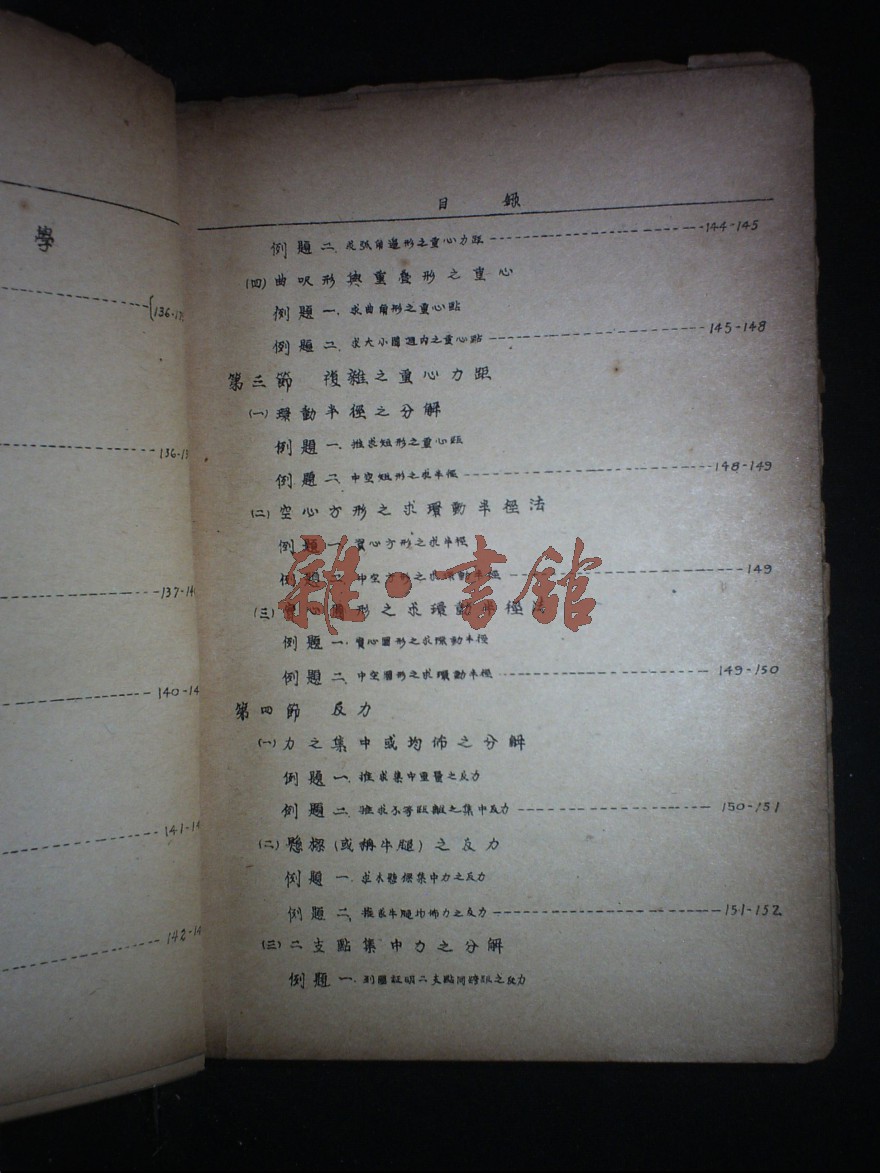 學
{136-13
136-13
137-14
140-14
141-14
142-14
目 錄
例題二、求弧角邊形之重心力距 144-145
(四)曲呎形與重疊形之重心
例題一、求曲角形之重心點
例題二、求大小圓週內之重心點 145-148
第三節 複雜之重心力距
(一)環動半徑之分解
例題一、推求矩形之重心距
例題二、中空矩形之求半徑 148-149
(二)空心方形之求環動半徑法
例題一、實心方形之求半徑
例題二、中空方形之求環動半徑 149
雜·書館
(三)空心圓形之求環動半徑法
例題一、實心圓形之求環動半徑
例題二、中空圓形之求環動半徑 149-150
第四節 反力
(一)力之集中或均佈之分解
例題一、推求集中重量之反力
例題二、推求不等距離之集中反力 150-151
(二)懸樑(或稱牛腿)之反力
例題一、求木懸樑集中力之反力
例題二、推求牛腿均佈力之反力 151-152
(三)二支點集中力之分解
例題一、列圖証明二支點間之反力